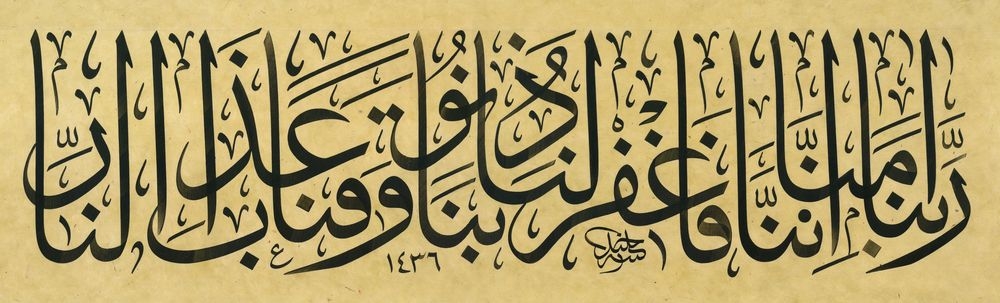 ربنا اننا امنا فاغفر لنا ذنوبنا وقنا عذاب النار
١٤٣٦